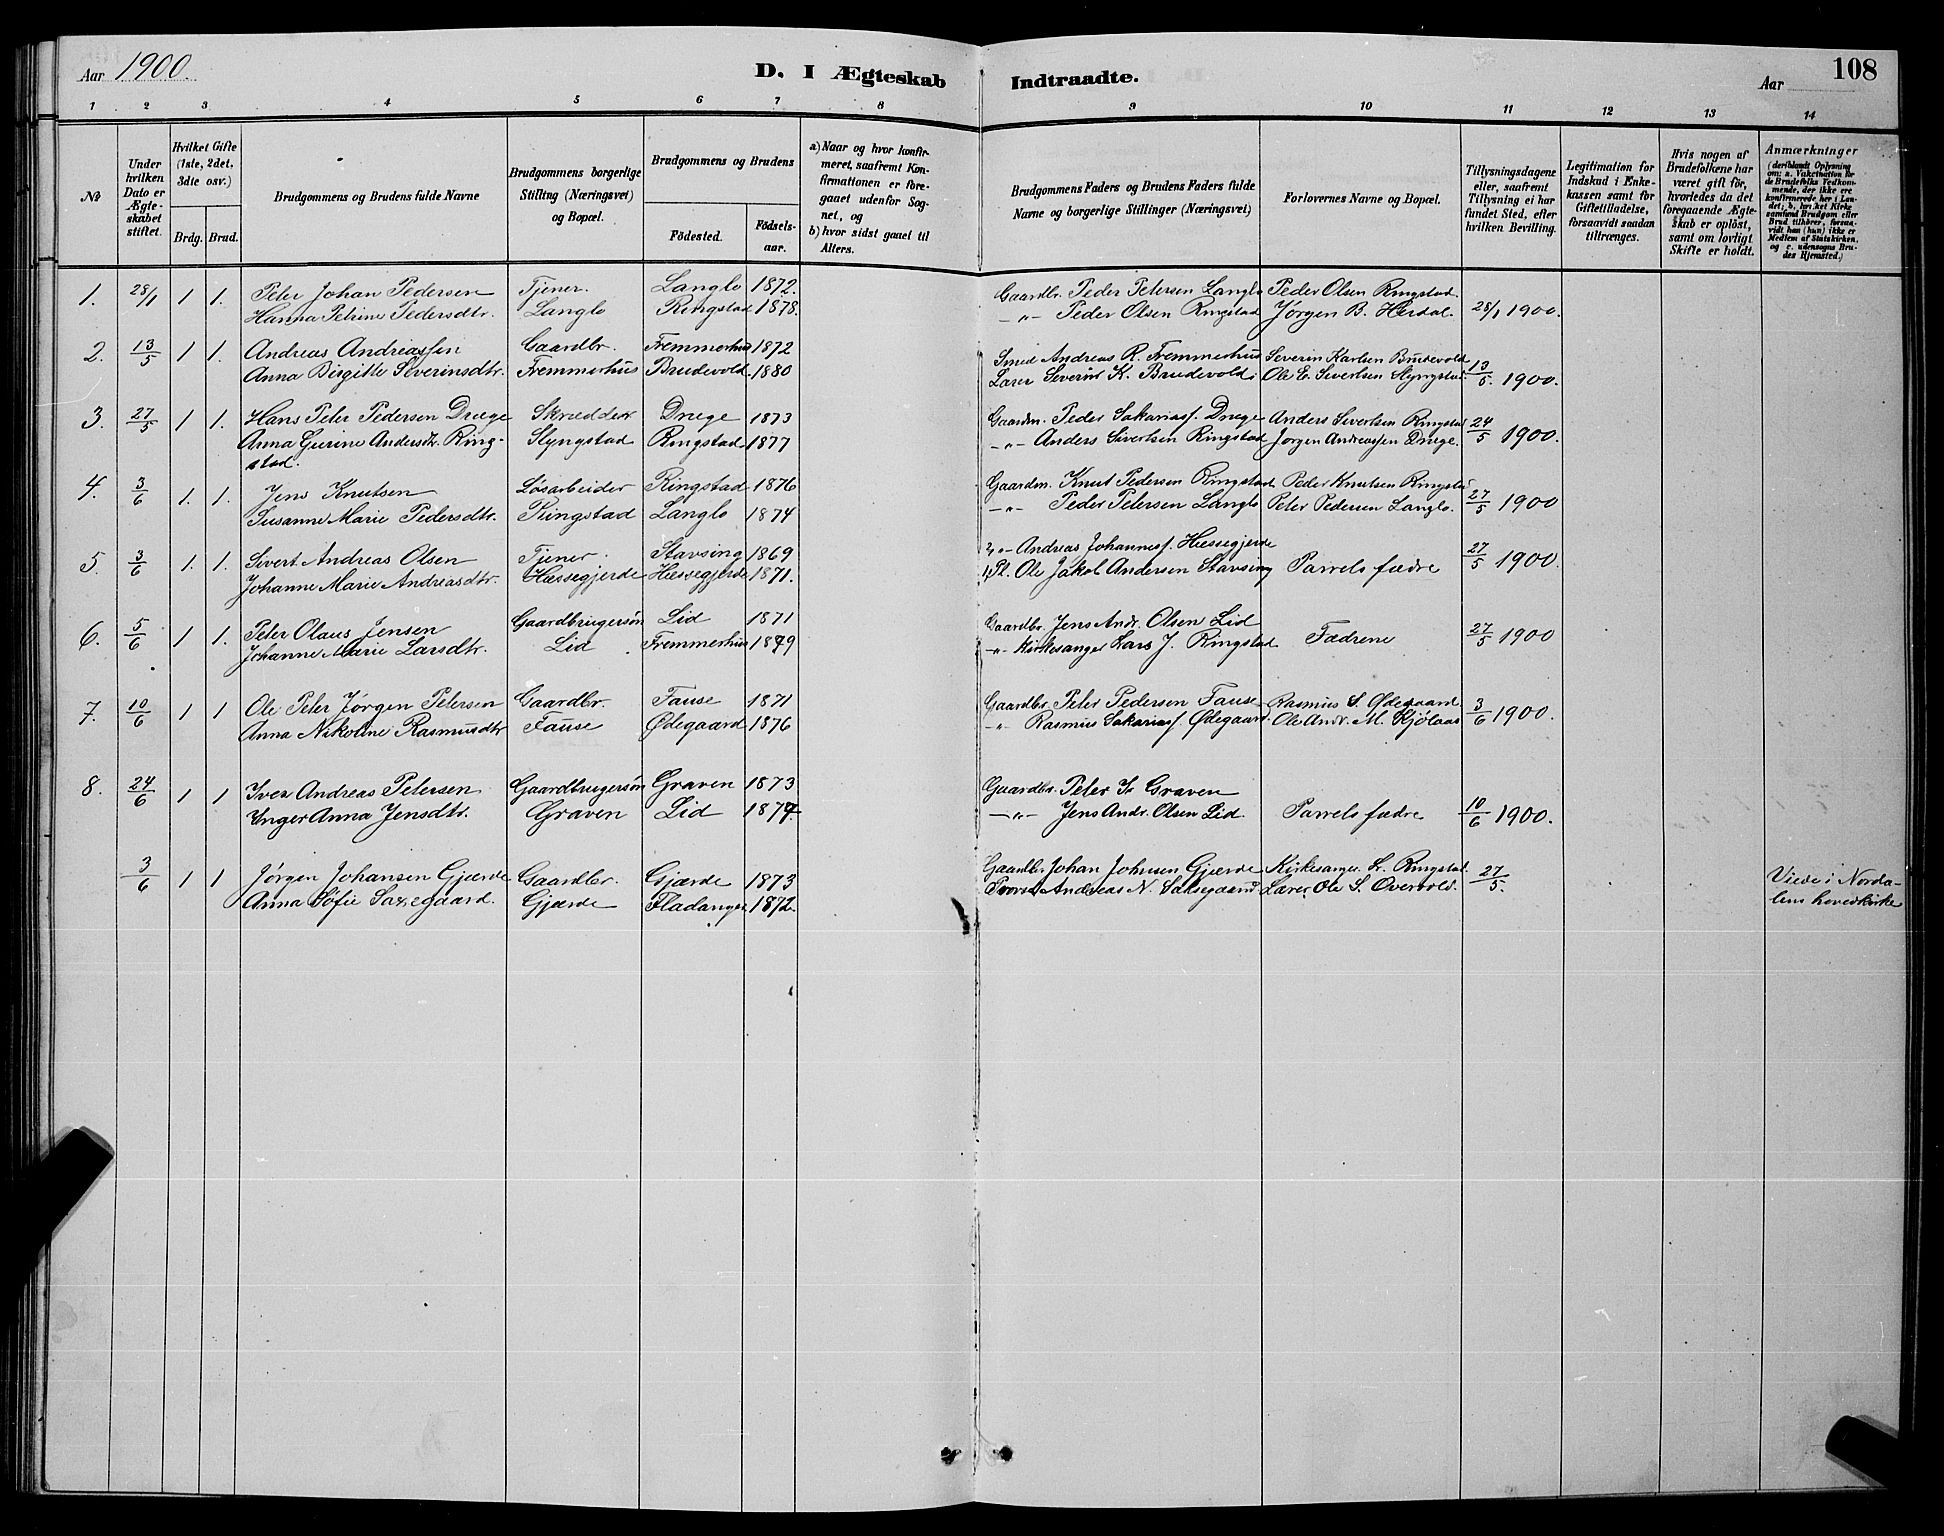 Aar 1900.
D. I Ægteskab Indtraadte.
Aar
108
1 2 3 4 5 6 7 8 9 10 11 12 13 14
No
Under hvilken Dato er Ægteskabet stiftet.
Hvilket Gifte (1ste, 2det, 3die osv.)
Brdg. Brud.
Brudgommens og Brudens fulde Navne
Brudgommens borgerlige Stilling (Næringsvei) og Bopæl.
Brudgommens og Brudens
Födested.
Födselsaar.
a) Naar og hvor konfirmeret, saafremt Konfirmationen er foregaaet udenfor Sognet, og
b) hvor sidst gaaet til Alters.
Brudgommens Faders og Brudens Faders fulde Navne og borgerlige Stillinger (Næringsvei)
Forlovernes Navne og Bopæl.
Tillysningsdagene eller, saafremt Tillysning ei har fundet Sted, efter hvilken Bevilling.
Legitimation for Indskud i Enkekassen samt for Giftetilladelse, forsaavidt saadan tiltrænges.
Hvis nogen af Brudefolkene har været gift för, hvorledes da det foregaaende Ægteskab er oplöst, samt om lovligt Skifte er holdt.
Anmærkninger
(deriblandt Oplysning om: a. Vakcination for de Brudefolks Vedkommende, der ikke ere konfirmerede her i Landet; b. hvilket Kirkesamfund Brudgom eller Brud tilhörer, forsaavidt han (hun) ikke er Medlem af Statskirken, og c. udensogns Brudes Hjemsted.)
1. 28/1 1 1. Peter Johan Pedersen Tjener. Langlo 1872. Gaardbr. Peder Petersen Langlo Peder Olsen Ringstad.
Hanna Petrine Pedersdtr. Langlo Ringstad 1878. -"- Peder Olsen Ringstad Jørgen B. Herdal. 28/1 1900.
2. 13/5 1 1. Andreas Andreassen Gaardbr. Fremmerhus 1872 Smed Andreas R. Fremmerhus Severin Karlsen Brudevold
Anna Birgitte Severinsdtr. Fremmerhus Brudevold. 1880 Lærer Severin K. Brudevold Ole E. Sivertsen Slyngstad. 13/5 1900.
3. 27/5 1 1. Hans Peter Pedersen Drege Skrædder Drege 1873 Gaardm. Peder Sakarias. Drege Anders Sivertsen Ringstad
Anna Gurine Andersdtr. Ringstad. Slyngstad Ringstad 1877 -"- Anders Sivertsen Ringstad Jørgen Andreassen Drege. 24/5 1900.
4. 3/6 1. 1. Jens Knutsen Løsarbeider Ringstad 1876 Gaardm. Knut Pedersen Ringstad Peder Knutsen Ringstad
Susanne Marie Pedersdtr. Ringstad Langlo 1874 -"- Peder Petersen Langlo Peter Pedersen Langlo. 27/5 1900
5. 3/6 1. 1. Sivert Andreas Olsen Tjener. Stavsing 1869 -"- Andreas Johannes. Hessegjerde
Johanne Marie Andreasdtr. Hessegjerde Hessegjerde 1871. Pl. Ole Jakob Andersen Stavsing Parrets fædre 27/5 1900.
6. 5/6 1 1. Peter Olaus Jensen Gaardbrugersøn Lid 1871 Gaardbr. Jens Andr. Olsen Lid
Johanne Marie Larsdtr. Lid Fremmerhus 1879 -"- Kirkesanger Lars J. Ringstad Fædrene 27/5 1900
7. 10/6 1 1 Ole Peter Jørgen Petersen Gaardbr. Fause 1871 Gaardbr. Peter Pedersen Fause Rasmus S. Ødegaard.
Anna Nikoline Rasmusdtr Fause Ødegaard 1876 -"- Rasmus Sakarias. Ødegaard. Ole Andr. M. Kjölaas 3/6 1900.
8. 24/6 1 1 Iver Andreas Petersen Gaardbrugersøn Graven 1873 Gaardbr. Peter Is Graven
Inger Anna Jensdtr. Graven Lid 1874. -"- Jens Andr. Olsen Lid. Parrets fædre 10/6 1900.
3/6 1 1 Jørgen Johansen Gjærde Gaardbr. Gjærde 1873 Gaardbr. Johan Johnsen Gjærde Kirkesanger Ringstad. 27/5. Viede i Nordalens hovedkirke
Anna Sofie Saxegaard. Gjærde Fladanger 1872. Andreas N. Saksegaard Lærer Ole S. Overvold.